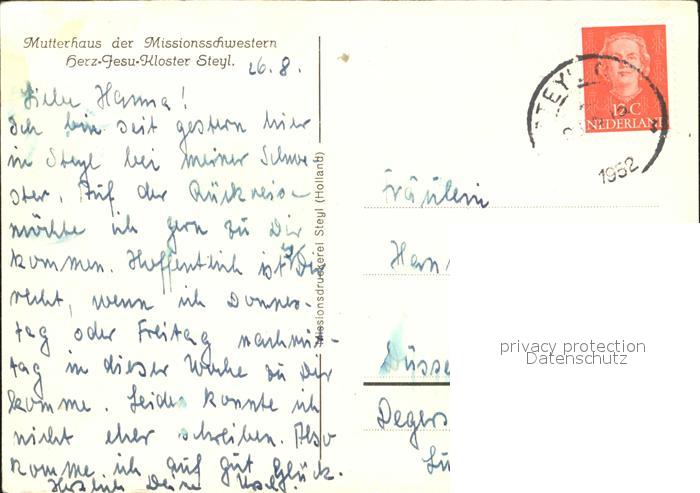 Mutterhaus der Missionsschwestern
Herz-Jesu-Kloster Steyl.
26.8.
Liebe Hanna!
Ich bin seit gestern hier
in Steyl bei meiner Schwe-
ster. Auf der Rückreise
möchte ich gern zu Dir
kommen. Hoffentlich ist es Dir
recht, wenn ich Donners-
tag oder Freitag nachmit-
tag in dieser Woche zu Dir
komme. Leider konnte ich
nicht eher schreiben. Also
komme ich auf gut Glück.
Herzlich Deine
Missionsdruckerei Steyl (Holland)
12C
NEDERLAND
STEYL
1952
Fräulein
Han
Düsse
Degers
privacy protection
Datenschutz